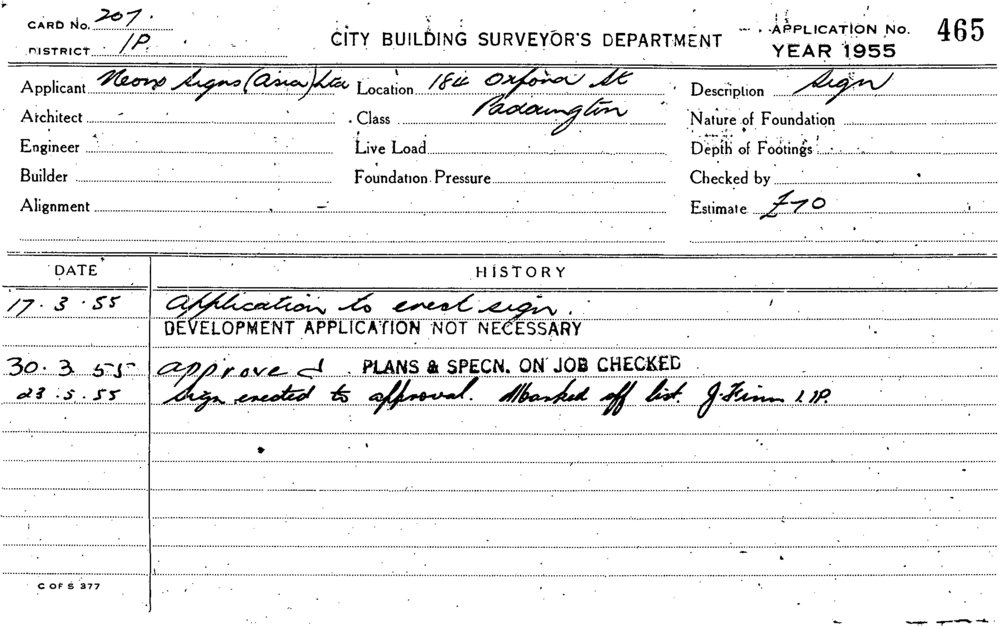 CARD No. 207.
DISTRICT 1P.
CITY BUILDING SURVEYOR'S DEPARTMENT
APPLICATION No. 465
YEAR 1955
Applicant Neon Signs (Asia) Ltd Location 184 Oxford St Description Sign
Architect Class Paddington Nature of Foundation
Engineer Live Load Depth of Footings
Builder Foundation Pressure Checked by
Alignment Estimate £70
DATE HISTORY
17.3.55 Application to erect sign.
DEVELOPMENT APPLICATION NOT NECESSARY
30.3.55 approved PLANS & SPECN. ON JOB CHECKED
23.5.55 Sign erected to approval. Marked off list. J. Finn 1P.
C OF S 377